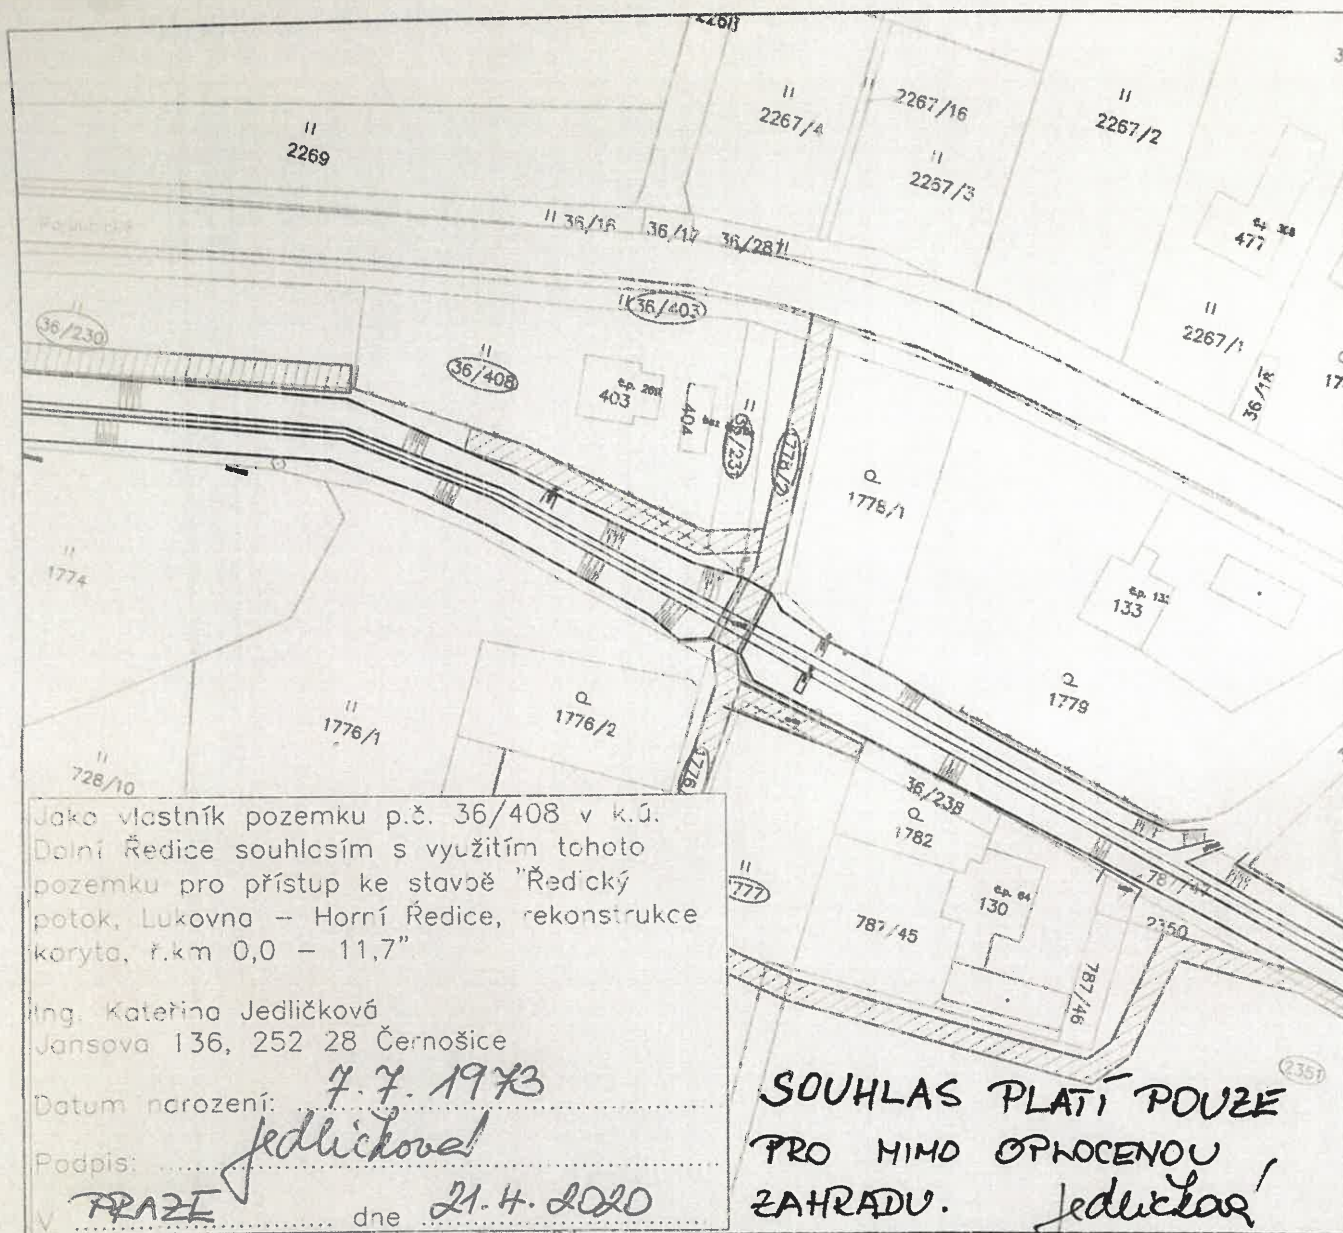 2268
"
2267/4
"
2267/16
"
2267/3
"
2267/2
"
2269
" 36/16 36/17 36/28 "
477
"
2267/1
"
36/403
"
36/230
"
36/408
č.p.
403
404
"
36/231
1778/2
1778/1
č.p.
133
1779
"
1774
"
1776/1
1776/2
"
728/10
36/238
1782
č.p. 64
130
787/47
2350
787/45
787/46
2351
Jako vlastník pozemku p.č. 36/408 v k.ú.
Dolní Ředice souhlasím s využitím tohoto
pozemku pro přístup ke stavbě "Ředický
potok, Lukovna – Horní Ředice, rekonstrukce
koryta, ř.km 0,0 – 11,7"
Ing. Kateřina Jedličková
Jansova 136, 252 28 Černošice
Datum narození: 7.7.1973
Podpis: Jedličková
V PRAZE dne 21.4.2020
SOUHLAS PLATÍ POUZE
PRO MIMO OPLOCENOU
ZAHRADU. Jedličková